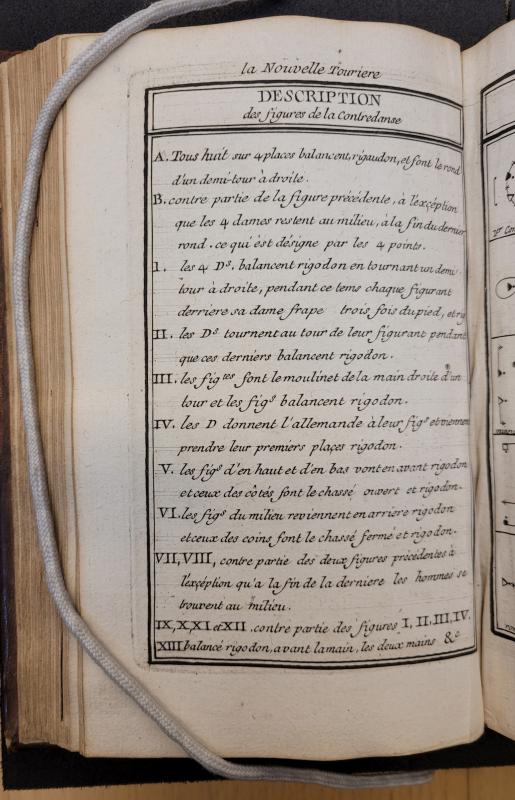 la Nouvelle Touriere
DESCRIPTION
des figures de la Contredanse
A. Tous huit sur 4 places balancent, rigaudon, et font le rond
d'un demi-tour à droite.
B. contre partie de la figure précédente, à l'exception
que les 4 dames restent au milieu, à la fin du dernier
rond. ce qui est désigne par les 4 points.
I. les 4 Ds. balancent rigodon en tournant un demi
tour à droite, pendant ce tems chaque figurant
derriere sa dame frape trois fois du pied, et rig
II. les Ds tournent au tour de leur figurant pendant
que ces derniers balancent rigodon.
III. les figtes font le moulinet de la main droite d'un
tour et les figs balancent rigodon.
IV. les D donnent l'allemande à leur figs et viennent
prendre leur premiers places rigodon.
V. les figs d'en haut et d'en bas vont en avant rigodon
et ceux des côtés font le chassé ouvert et rigodon.
VI. les figs du milieu reviennent en arriere rigodon
et ceux des coins font le chassé fermé et rigodon.
VII, VIII, contre partie des deux figures précédentes à
l'exception qu'a la fin de la derniere les hommes se
trouvent au milieu.
IX, X, XI et XII. contre partie des figures I, II, III, IV.
XIII balancé rigodon, avant la main, les deux mains &c